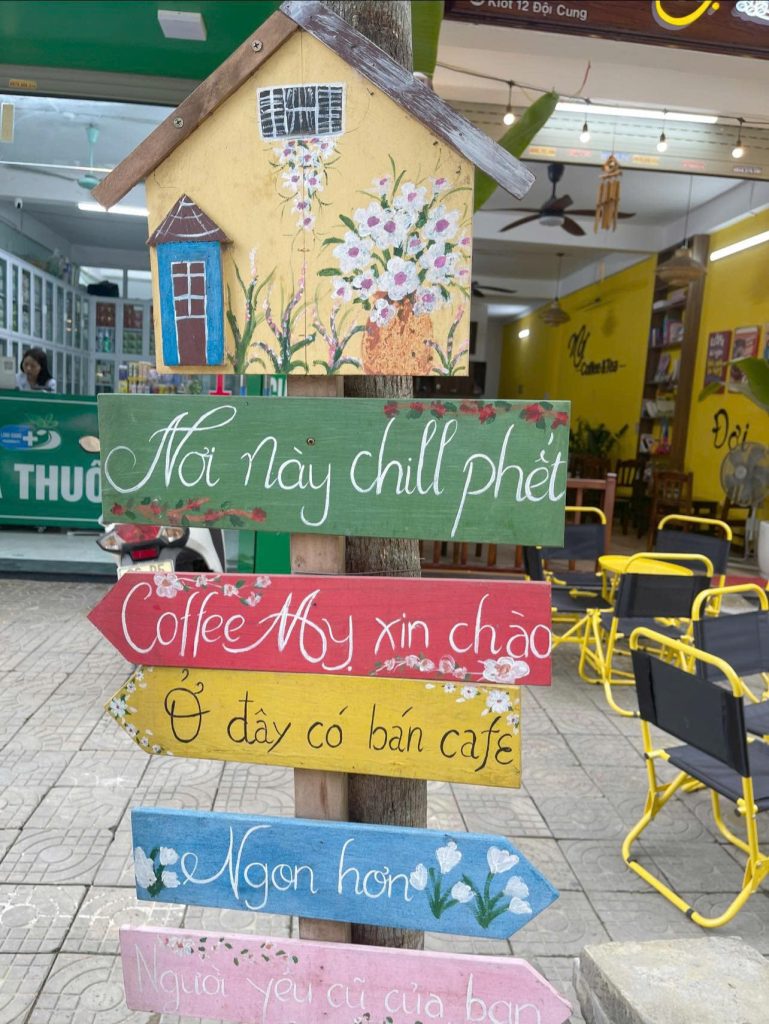 Kiot 12 Đội Cung
Nơi này chill phết
Coffee Mỵ xin chào
Ở đây có bán cafe
Ngon hơn
Người yêu cũ của bạn
THUỐ
Mỵ
Coffee & Tea
Đợi